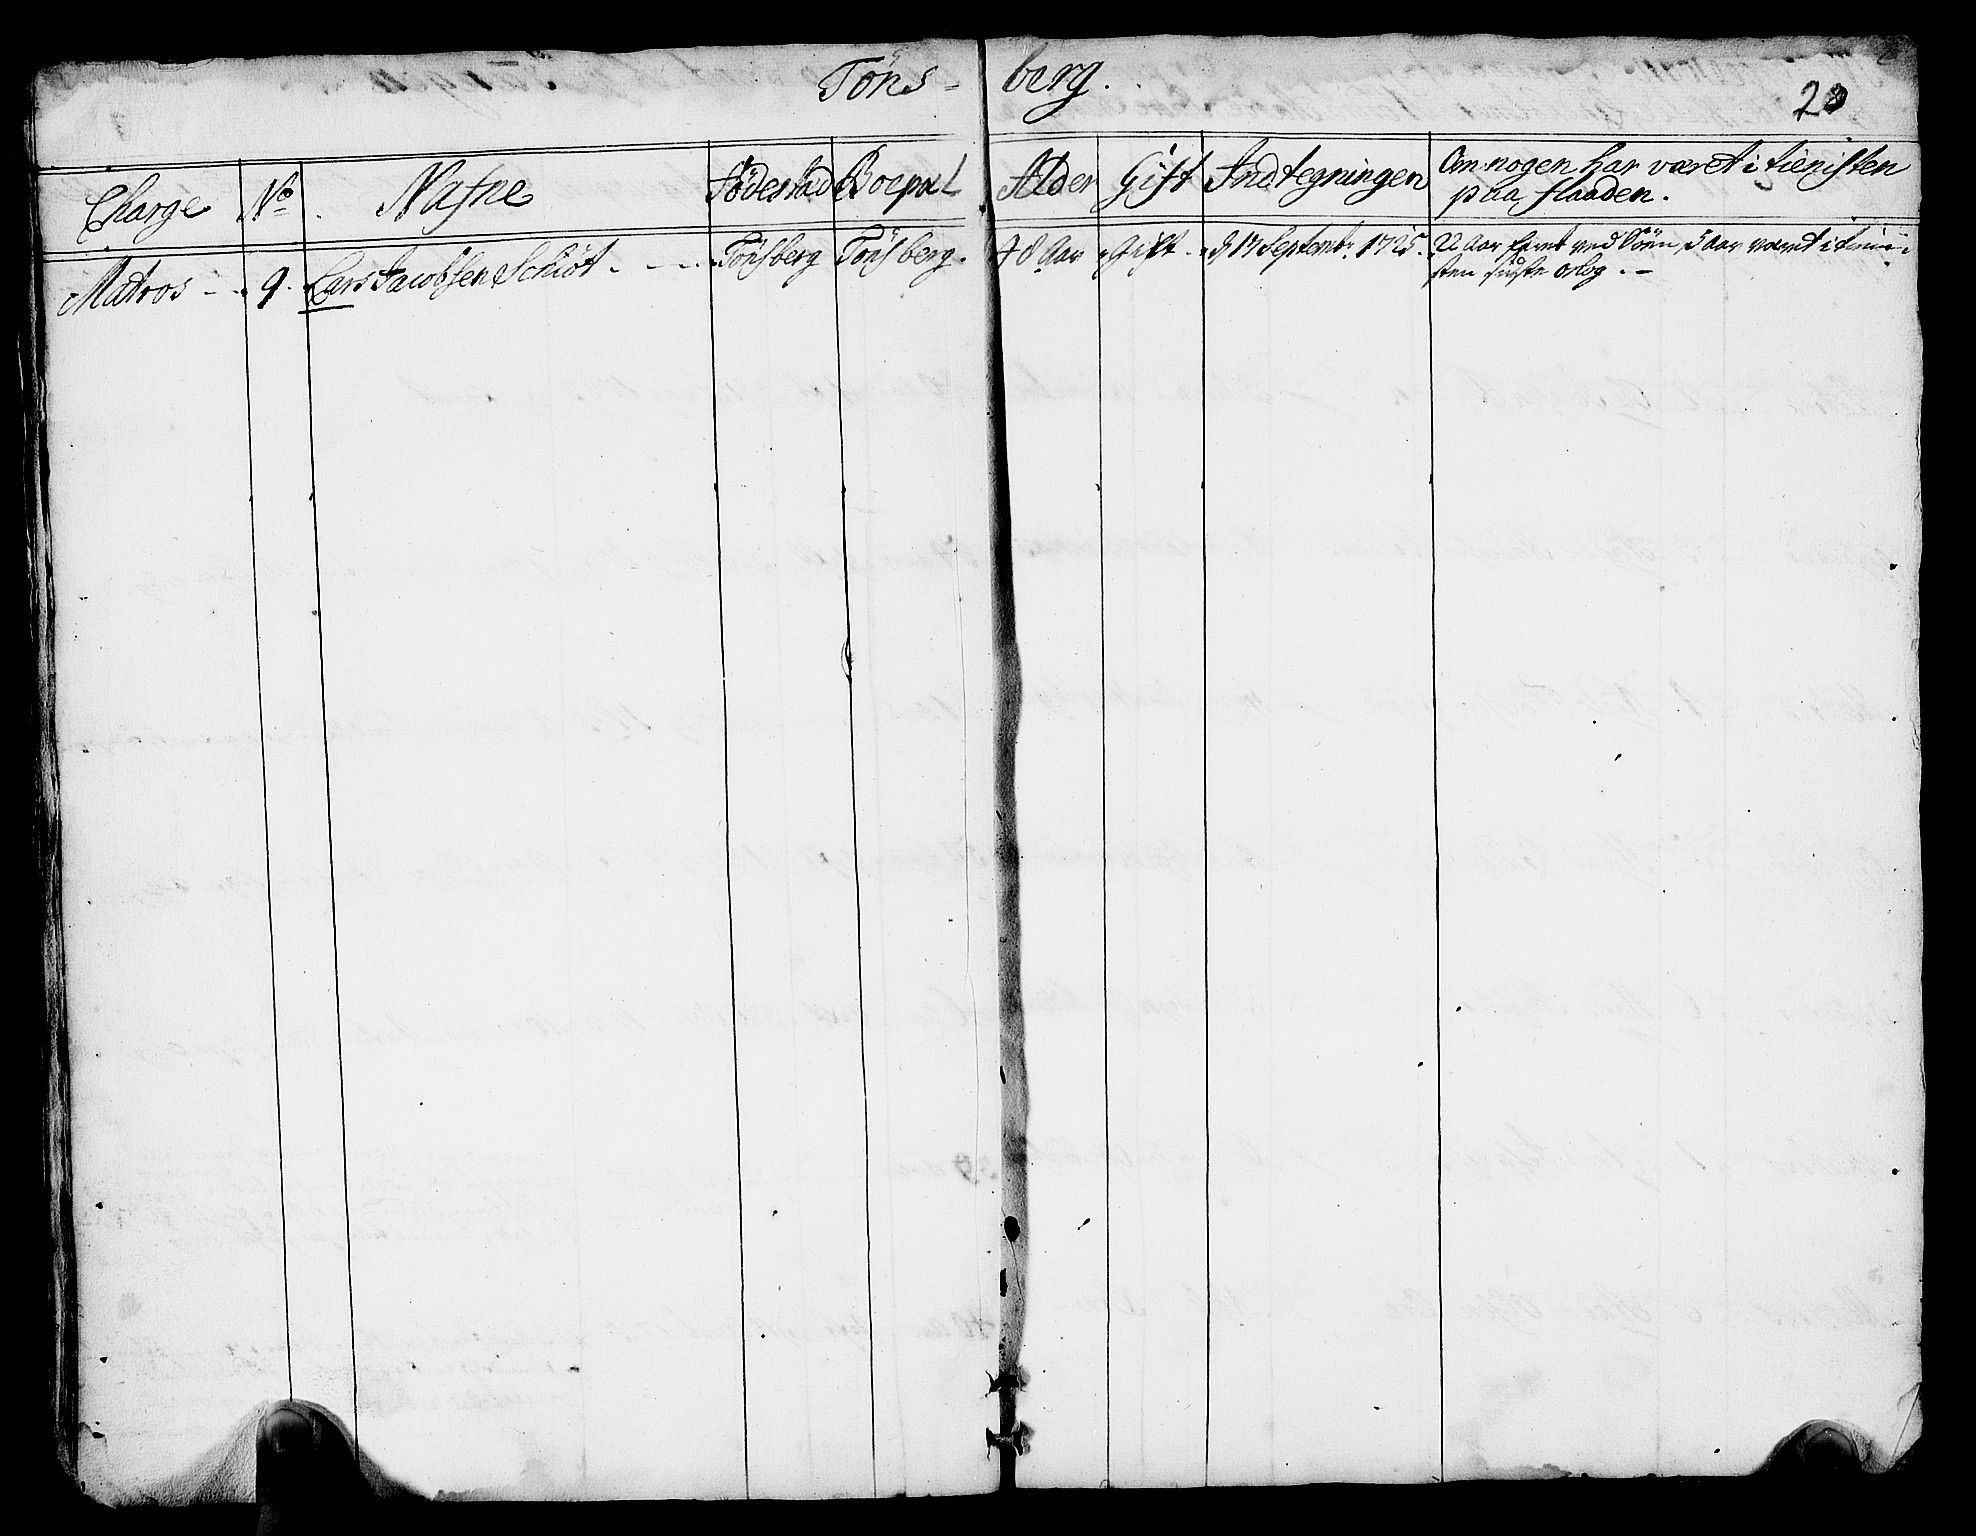 Töns- berg.
20
Charge No. Nafne Födestäd Boepæl Alder Gift Indtegningen Om nogen har været i tienisten
paa flaaden.
Matros - 9. Lars Jacobsen Schiöt - - - Tönsberg Tönsberg. 48 Aar Gift. d 17 Septembr. 1725. 22 aar faret ved Söen, 5 aar været i tieni-
sten sidste orlog. -